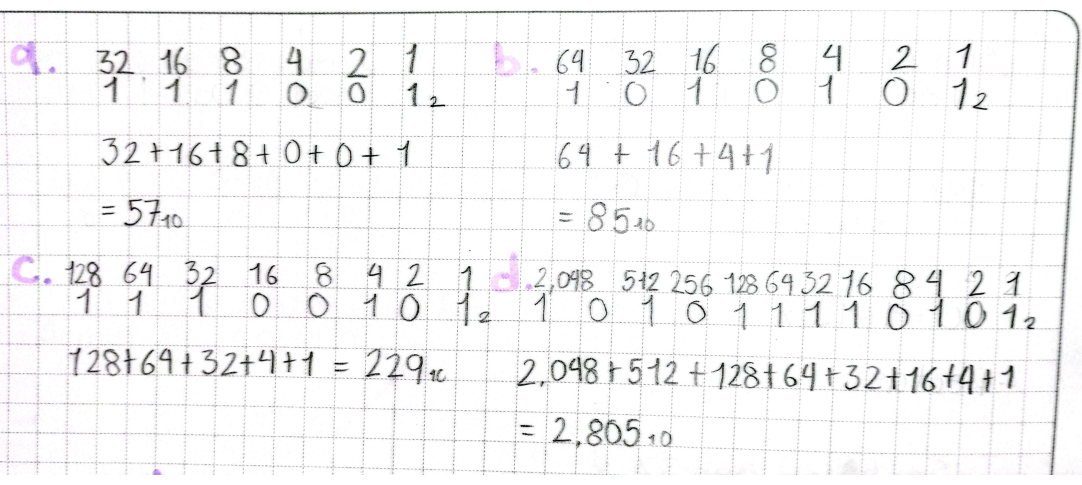 a. 32 16 8 4 2 1
1 1 1 0 0 1₂
32+16+8+0+0+1
= 57₁₀
b. 64 32 16 8 4 2 1
1 0 1 0 1 0 1₂
64 + 16 + 4 + 1
= 85₁₀
c. 128 64 32 16 8 4 2 1
1 1 1 0 0 1 0 1₂
128+64+32+4+1 = 229₁₀
d. 2,048 512 256 128 64 32 16 8 4 2 1
1 0 1 0 1 1 1 1 0 1 0 1₂
2,048+512+128+64+32+16+4+1
= 2,805₁₀